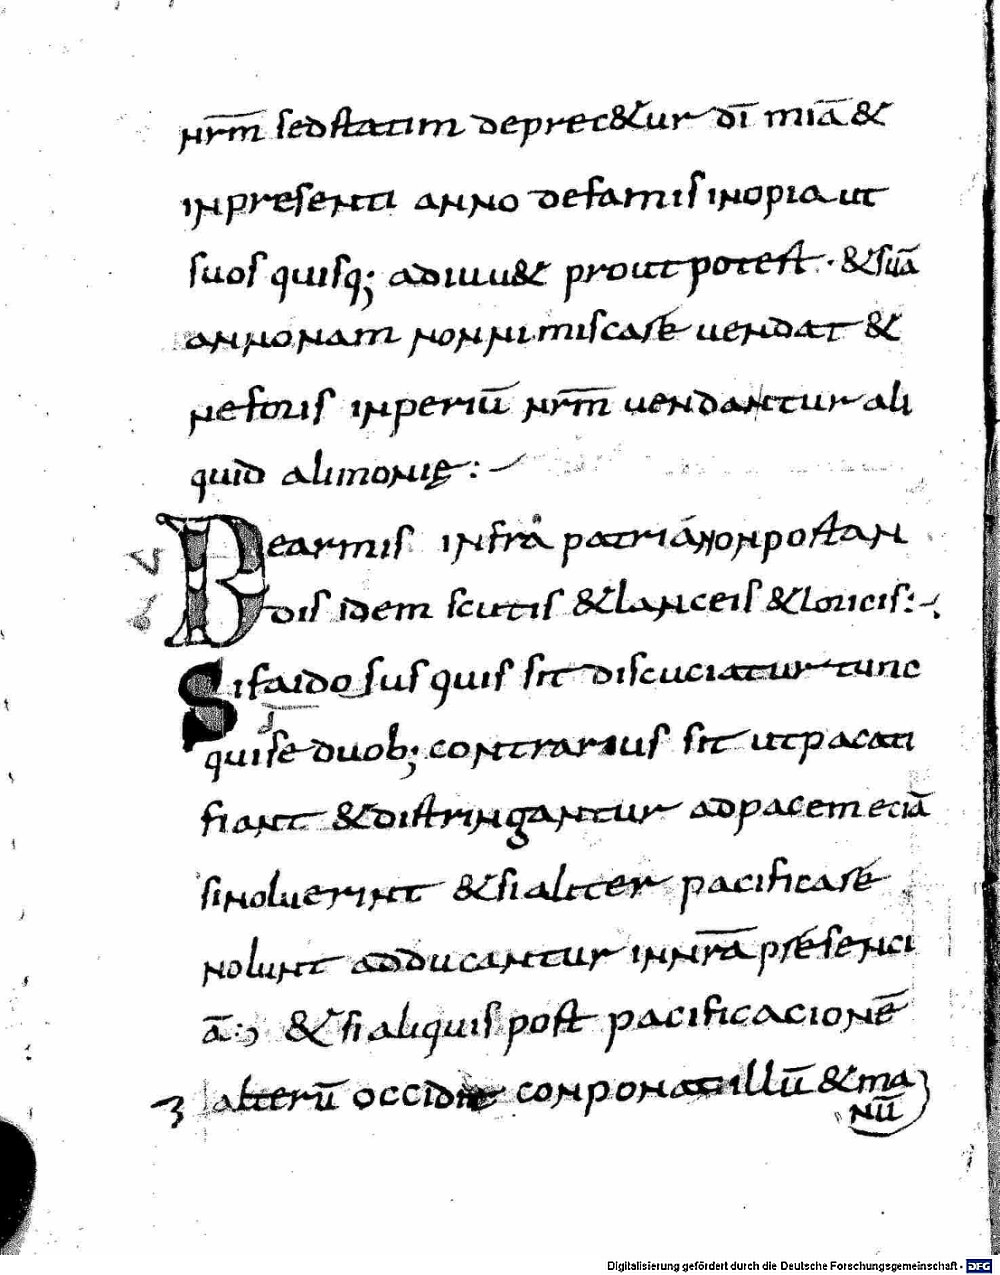 nr̅m sed statim deprec&ur dı̅ mia̅ &
inpresenti anno de famis inopia ut
suos quisq; adiuu& prout potest · & sua̅
annonam non nimis care uendat &
ne foris inperiu̅ nr̅m uendantur ali
quid alimonię :
De armis infra patria non portan
dis idem scutis & lanceis & loricis :
Si faidosus quis sit discuciatur tunc
quis e duob; contrarius sit ut pacati
fiant & distringantur ad pacem ecia̅
si noluerint & si aliter pacificare
nolunt adducantur in nr̅a̅ presenci
a̅ : & si aliquis post pacificacione̅
alteru̅ occidit conponat illu̅ & ma
nu̅
Digitalisierung gefördert durch die Deutsche Forschungsgemeinschaft - DFG